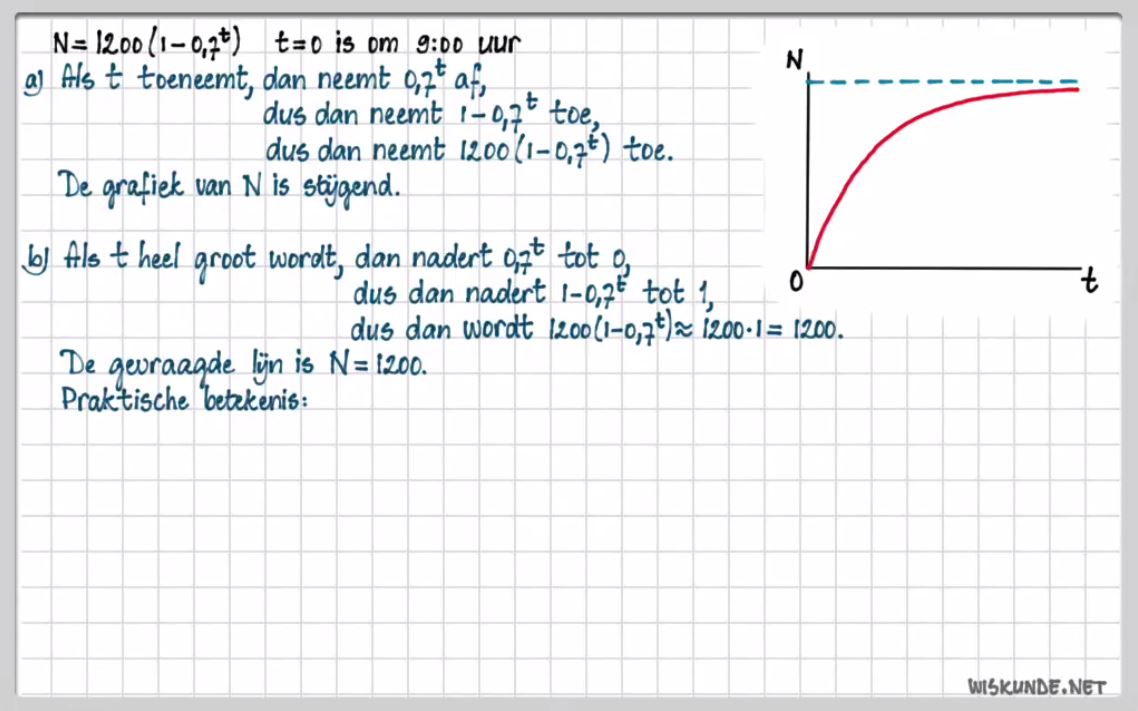 N = 1200(1-0,7^t)  t=0 is om 9:00 uur
a) Als t toeneemt, dan neemt 0,7^t af,
dus dan neemt 1-0,7^t toe,
dus dan neemt 1200(1-0,7^t) toe.
De grafiek van N is stijgend.
b) Als t heel groot wordt, dan nadert 0,7^t tot 0,
dus dan nadert 1-0,7^t tot 1,
dus dan wordt 1200(1-0,7^t) ≈ 1200·1 = 1200.
De gevraagde lijn is N = 1200.
Praktische betekenis:
N
0
t
WISKUNDE.NET